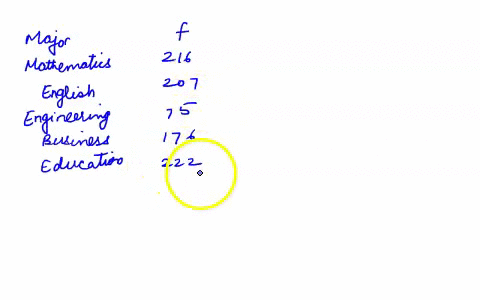 Major f
Mathematics 216
English 207
Engineering 75
Business 176
Education 222